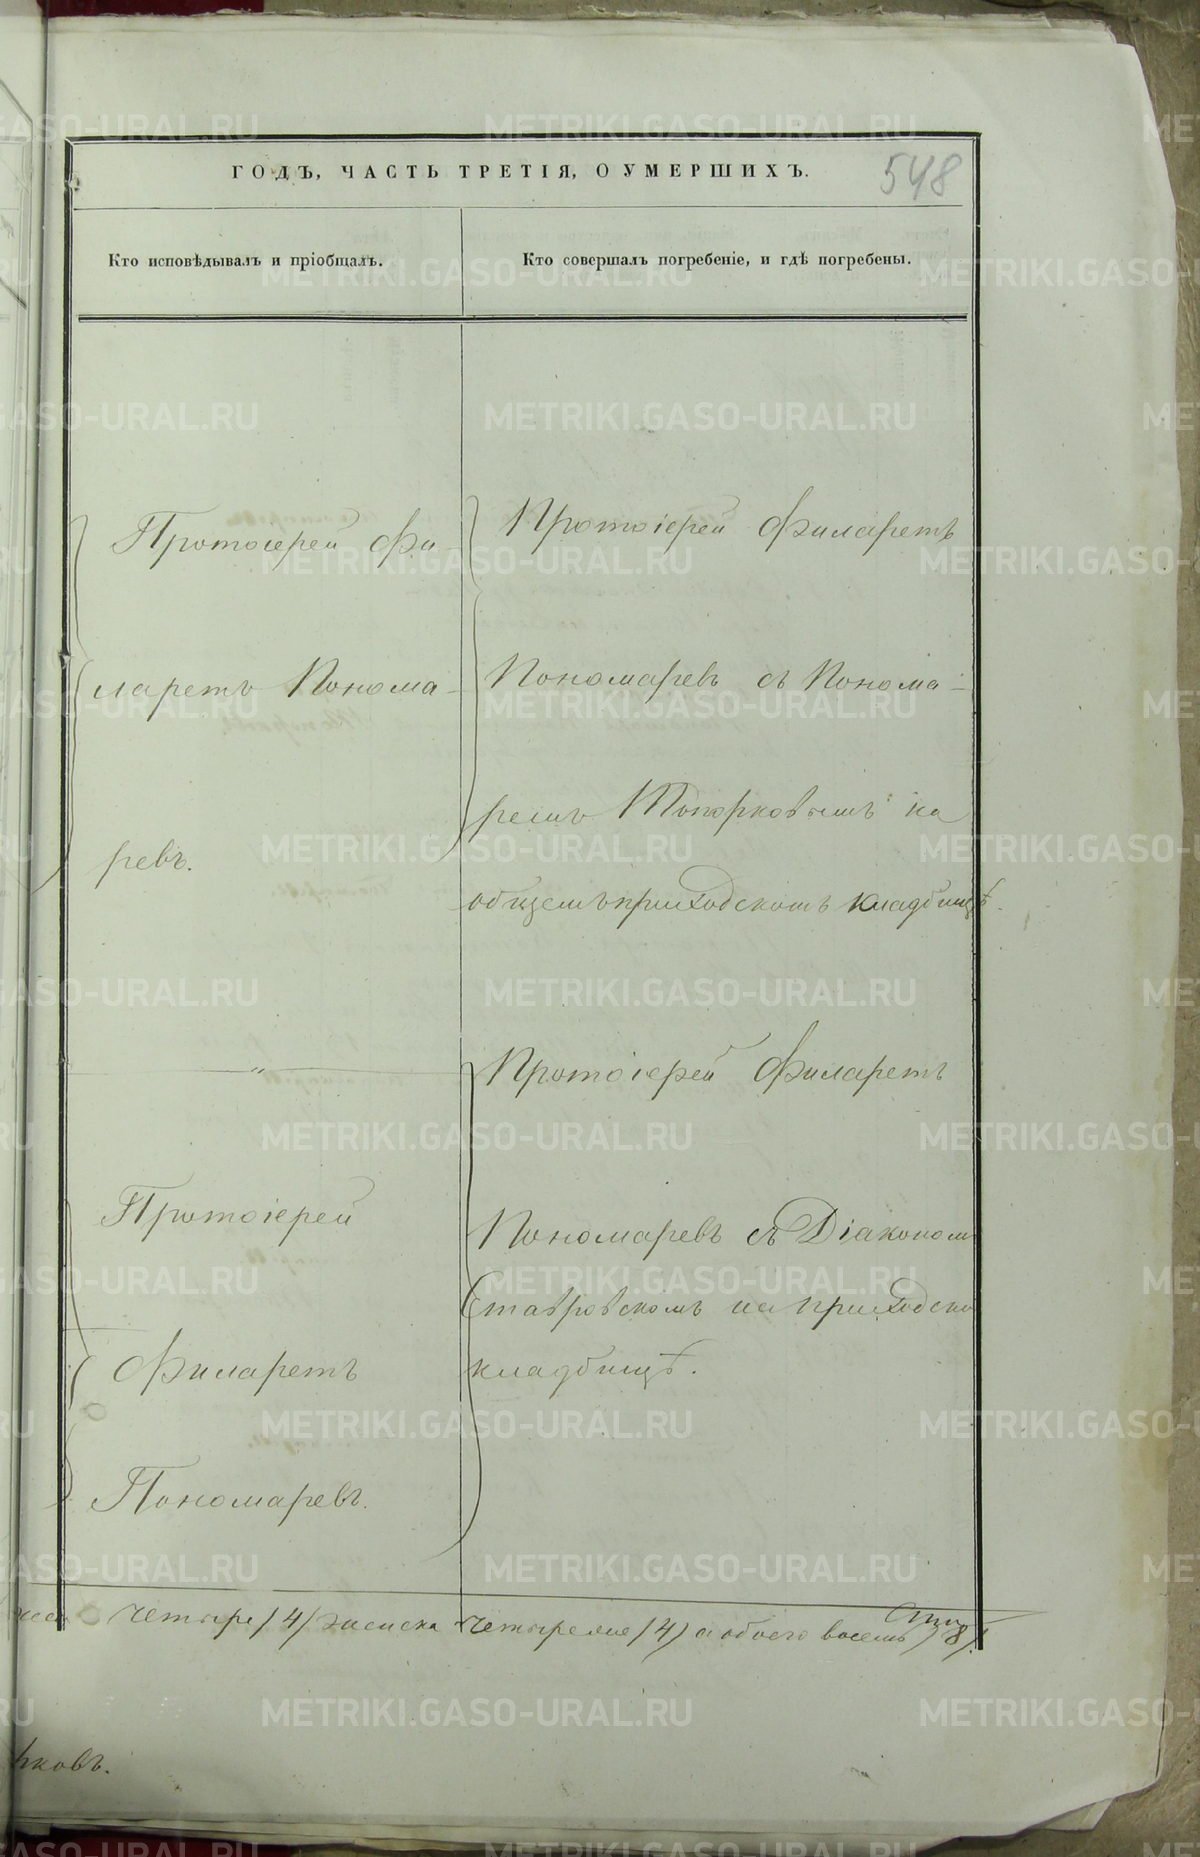 ГОДЪ, ЧАСТЬ ТРЕТІЯ, О УМЕРШИХЪ.
548
Кто исповѣдывалъ и пріобщалъ.
Кто совершалъ погребеніе, и гдѣ погребены.
Протоіерей Фи-
ларетъ Понома-
ревъ.
Протоіерей Филаретъ
Пономаревъ съ Понома-
ремъ Топорковымъ на
общемъ приходскомъ кладбищѣ.
"
Протоіерей
Филаретъ
Пономаревъ.
Протоіерей Филаретъ
Пономаревъ съ Діакономъ
Ставровскомъ на приходско
кладбищѣ.
четыре /4/ женска четыре /4/ а обоего восемь /8/.
ковъ.
METRIKI.GASO-URAL.RU